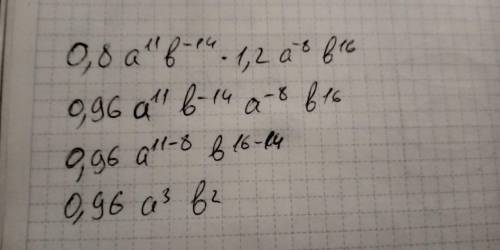 0,8 a¹¹ в⁻¹⁴ · 1,2 a⁻⁸ в¹⁶
0,96 a¹¹ в⁻¹⁴ a⁻⁸ в¹⁶
0,96 a¹¹⁻⁸ в¹⁶⁻¹⁴
0,96 a³ в²